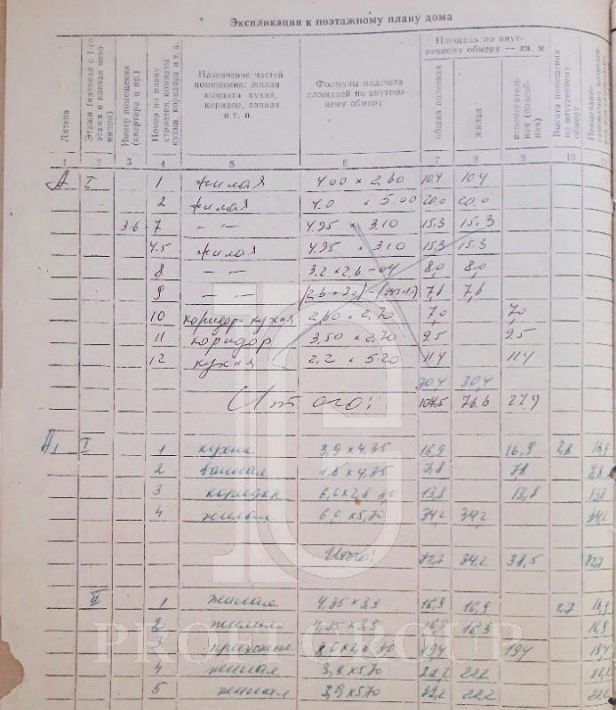 Экспликация к поэтажному плану дома
Литера
Этажи (начиная с 1-го этажа и кончая мезонином)
Номер помещения (квартира и пр.)
Номер по плану строения, комнаты кухни, коридора и т. д.
Назначение частей помещения: жилая комната кухня, коридор, ванная и т. п.
Формулы подсчета площадей по внутреннему обмеру
Площадь по внутреннему обмеру — кв. м
общая полезная
жилая
вспомогательная (подсобная)
Высота помещения по внутреннему обмеру
1 2 3 4 5 6 7 8 9 10
А I 1 жилая 4.00 × 2,60 10,4 10,4
2 жилая 4.0 × 5.00 20,0 20.0
36 7 — 4.95 × 3.10 15.3 15.3
4.5 жилая 4.95 × 3.10 15.3 15.3
8 — 8,0 8,0
9 — 7,6 7,6
10 коридор-кухня 2,60 × 2,70 7.0 7.0
11 коридор 3,50 × 2,70 9.5 9.5
12 кухня 2,2 × 5.20 11.4 11.4
30,4 30,4
Итого: 107.5 76.6 27,9
А1 I 1 кухня 3,9 × 4,35 16,9 16,9
2 ванная 7,8
3 коридор 13,8 13,8
4 жилая 6,0 × 5,70 34,2 34,2
Итого: 72,7 34,2 38,5
II 1 жилая 4,35 × 3,9 16,9 16,9 2,7 16,9
2 жилая 4,35 × 3,9 16,9 16,9
3 19,4 19,4
4 жилая 3,9 × 5,70 22,2 22,2
5 жилая 3,9 × 5,70 22,2 22,2
PROFI GROUP